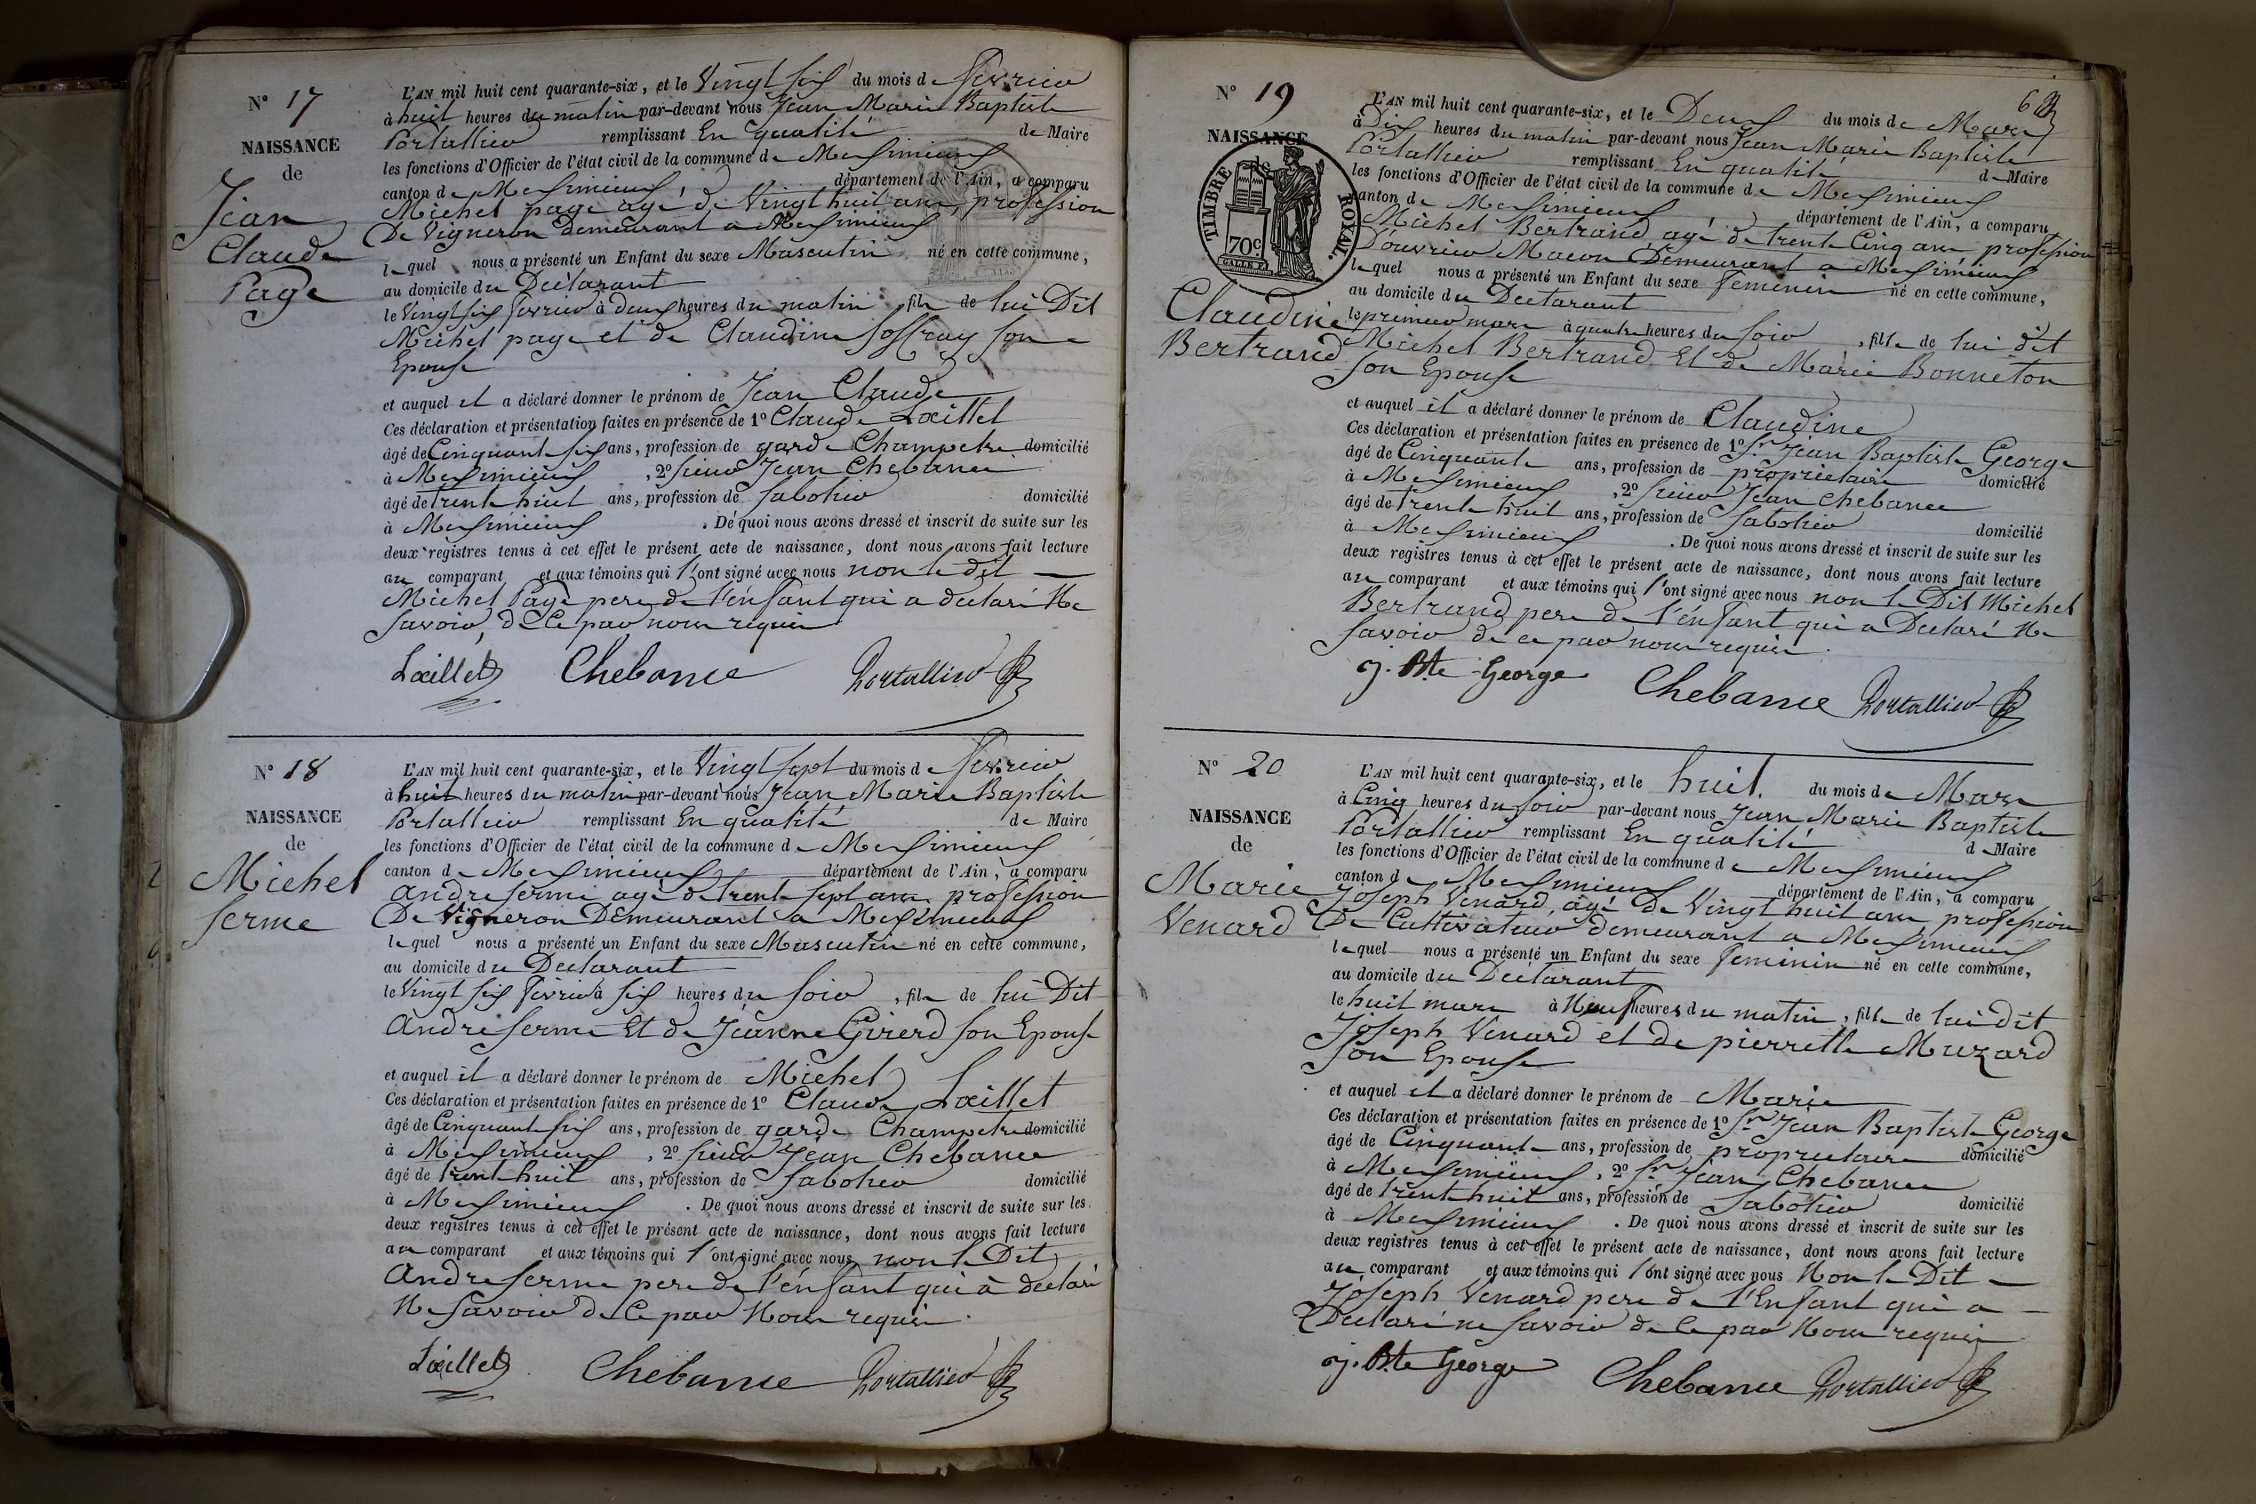 N° 17
NAISSANCE
de
Jean
Claude
Page
L'AN mil huit cent quarante-six, et le Vingt six du mois de fevrier
à huit heures du matin par-devant nous Jean Marie Baptiste
Portallier remplissant En qualité de Maire
les fonctions d'Officier de l'état civil de la commune de Meximieux
canton de Meximieux, département de l'Ain, a comparu
Michel page agé de Vingt huit ans, profession
De Vigneron demeurant a Meximieux
lequel nous a présenté un Enfant du sexe Masculin né en cette commune,
au domicile du Déclarant
le Vingt six fevrier à deux heures du matin fils de lui Dit
Michel page et de Claudine Joffray son
Epouse
et auquel il a déclaré donner le prénom de Jean Claude
Ces déclaration et présentation faites en présence de 1° Claude Lœillet
âgé de Cinquante six ans, profession de garde Champetre domicilié
à Meximieux, 2° sieur Jean Chebance
âgé de trente huit ans, profession de Sabotier domicilié
à Meximieux. De quoi nous avons dressé et inscrit de suite sur les
deux registres tenus à cet effet le présent acte de naissance, dont nous avons fait lecture
au comparant et aux témoins qui l'ont signé avec nous non le dit
Michel Page pere de l'enfant qui a declaré Ne
savoir, de Ce par nous requis
Lœillet Chebance Portallier
N° 18
NAISSANCE
de
Michel
Serme
L'AN mil huit cent quarante-six, et le Vingt sept du mois de fevrier
à huit heures du matin par-devant nous Jean Marie Baptiste
Portallier remplissant En qualité de Maire
les fonctions d'Officier de l'état civil de la commune de Meximieux
canton de Meximieux département de l'Ain, a comparu
andre serme agé de trente sept ans profession
De Vigneron Demeurant a Meximieux
lequel nous a présenté un Enfant du sexe Masculin né en cette commune,
au domicile du Declarant
le Vingt six fevrier à six heures du soir, fils de lui Dit
andre serme Et de Jeanne Girerd son Epouse
et auquel il a déclaré donner le prénom de Michel
Ces déclaration et présentation faites en présence de 1° Claude Lœillet
âgé de Cinquante six ans, profession de garde Champetre domicilié
à Meximieux, 2° sieur Jean Chebance
âgé de trente huit ans, profession de Sabotier domicilié
à Meximieux. De quoi nous avons dressé et inscrit de suite sur les
deux registres tenus à cet effet le présent acte de naissance, dont nous avons fait lecture
au comparant et aux témoins qui l'ont signé avec nous non le Dit
andre serme pere de l'enfant qui à declaré
Ne savoir de Ce par Nous requis.
Lœillet Chebance Portallier
6
N° 19
NAISSANCE
de
TIMBRE ROYAL.
70c
Claudine
Bertrand
L'AN mil huit cent quarante-six, et le Deux du mois de Mars
à Dix heures du matin par-devant nous Jean Marie Baptiste
Portallier remplissant En qualité de Maire
les fonctions d'Officier de l'état civil de la commune de Meximieux
canton de Meximieux département de l'Ain, a comparu
Michel Bertrand agé de trente Cinq ans profession
D'ouvrier Macon Demeurant a Meximieux
lequel nous a présenté un Enfant du sexe feminin né en cette commune,
au domicile du Declarant
le premier mars à quatre heures du soir, fille de lui dit
Michel Bertrand Et de Marie Bonneton
son Epouse
et auquel il a déclaré donner le prénom de Claudine
Ces déclaration et présentation faites en présence de 1° Sr Jean Baptiste George
âgé de Cinquante ans, profession de proprietaire domicilié
à Meximieux, 2° sieur Jean Chebance
âgé de trente huit ans, profession de Sabotier domicilié
à Meximieux. De quoi nous avons dressé et inscrit de suite sur les
deux registres tenus à cet effet le présent acte de naissance, dont nous avons fait lecture
au comparant et aux témoins qui l'ont signé avec nous non le Dit Michel
Bertrand pere de l'enfant qui a Declaré Ne
savoir de ce par nous requis.
j. Bte George Chebance Portallier
N° 20
NAISSANCE
de
Marie
Venard
L'AN mil huit cent quarante-six, et le huit. du mois de Mars
à Cinq heures du soir par-devant nous Jean Marie Baptiste
Portallier remplissant En qualité de Maire
les fonctions d'Officier de l'état civil de la commune de Meximieux
canton de Meximieux département de l'Ain, a comparu
Joseph Venard, agé De Vingt huit ans profession
De Cultivateur demeurant a Meximieux
lequel nous a présenté un Enfant du sexe feminin né en cette commune,
au domicile du Declarant
le huit mars à Neuf heures du matin, fille de lui dit
Joseph Venard et de pierrette Muzard
son Epouse
et auquel il a déclaré donner le prénom de Marie
Ces déclaration et présentation faites en présence de 1° Sr Jean Baptiste George
âgé de Cinquante ans, profession de proprietaire domicilié
à Meximieux, 2° Sr Jean Chebance
âgé de trente huit ans, profession de Sabotier domicilié
à Meximieux. De quoi nous avons dressé et inscrit de suite sur les
deux registres tenus à cet effet le présent acte de naissance, dont nous avons fait lecture
au comparant et aux témoins qui l'ont signé avec nous Non le Dit
Joseph Venard pere de l'Enfant qui a
Declaré ne savoir de Ce par Nous requis
j. Bte George Chebance Portallier